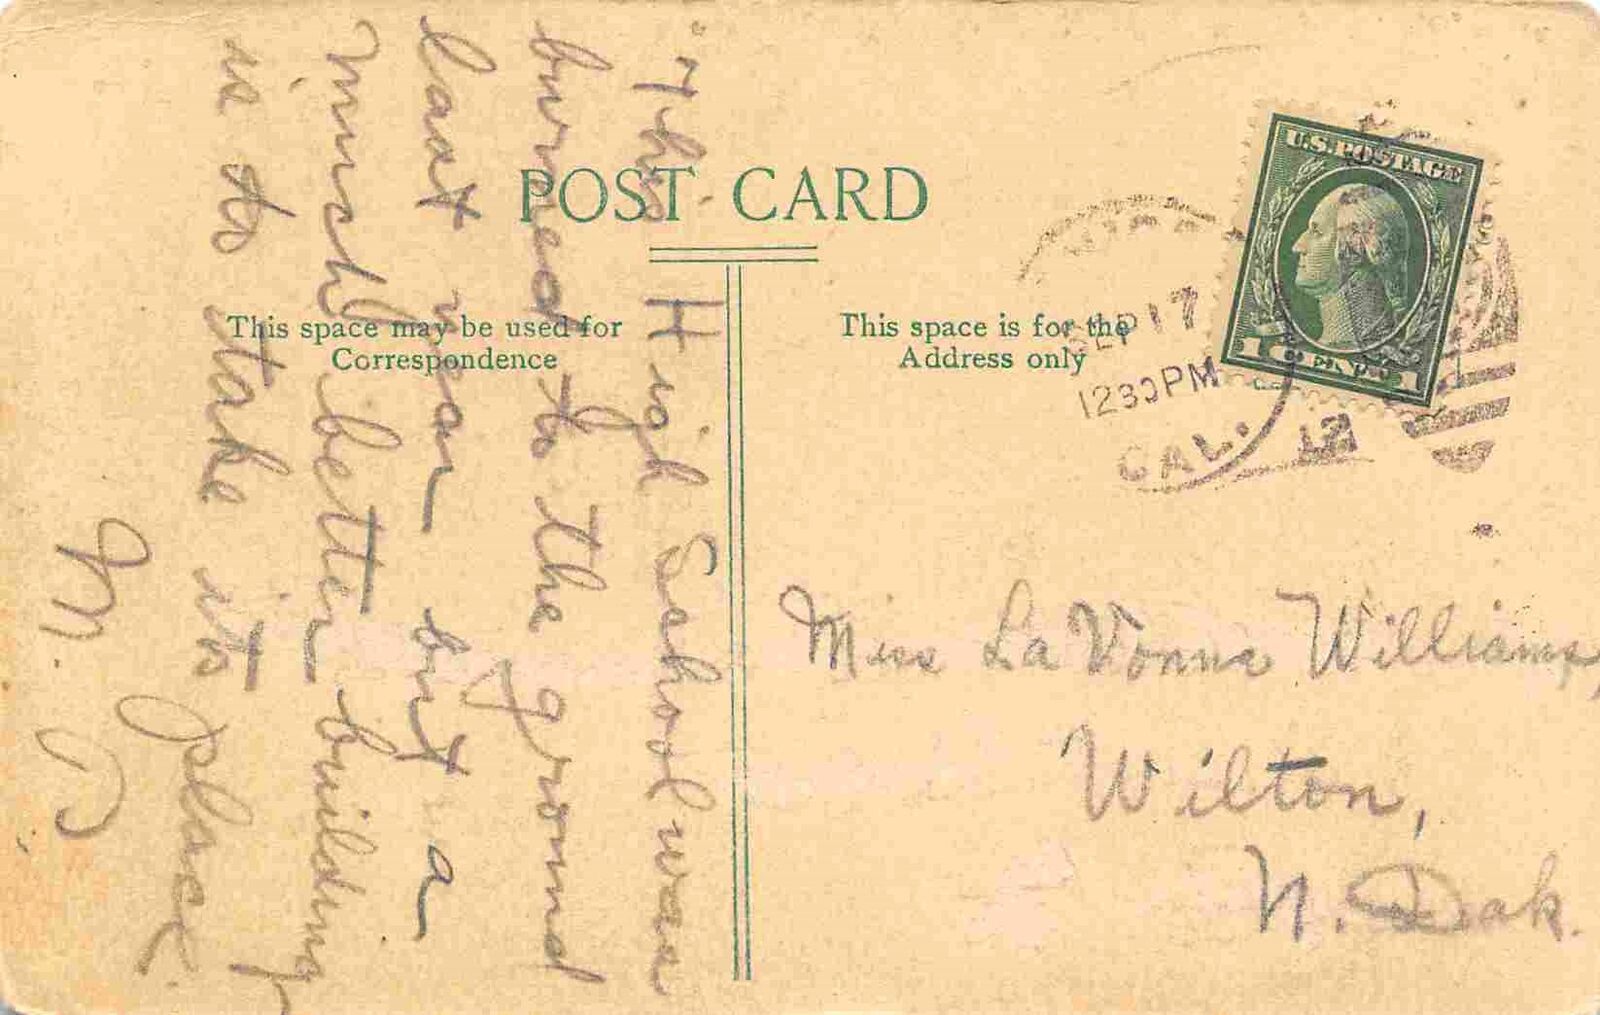 POST CARD
This space may be used for
Correspondence
This space is for the
Address only
U.S. POSTAGE
1 CENT 1
SEP 17
12 30 PM
CAL.
12
This High School was
burned to the ground
last year but a
much better building
is to take its place
M.
Miss La Vonna Williams,
Wilton,
N. Dak.